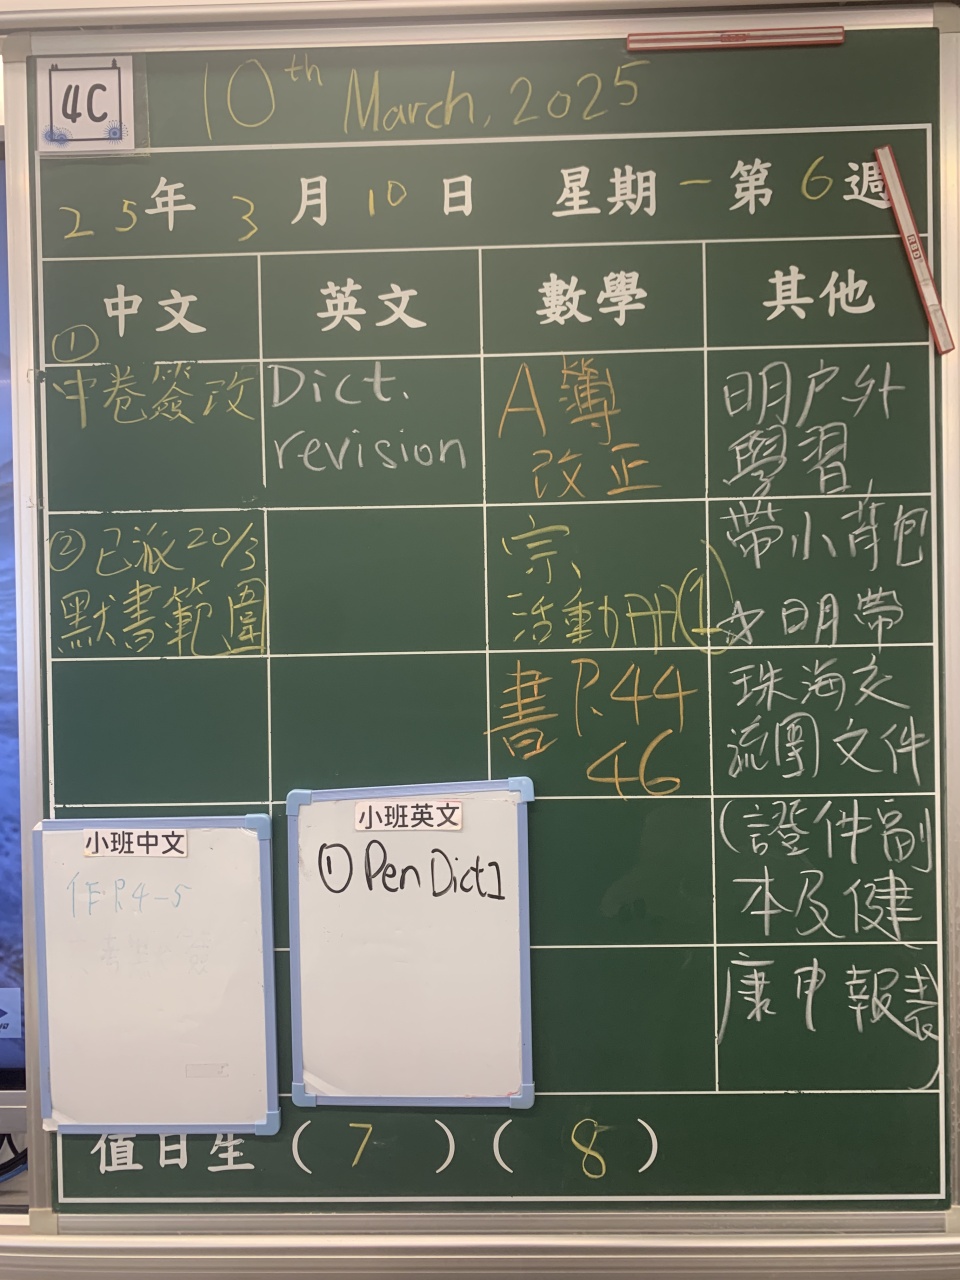 4C
10th March, 2025
25年3月10日 星期一 第6週
中文 英文 數學 其他
①
中卷簽改
Dict.
revision
A簿
改正
明户外
學習
②已派20/3
默書範圍
宗
活動册(1)
帶小背包
☆明帶
書P.44
46
珠海交
流團文件
(證件副
本及健
康申報表)
小班中文
作P.4-5
小班英文
①Pen Dict1
值日生(7)(8)